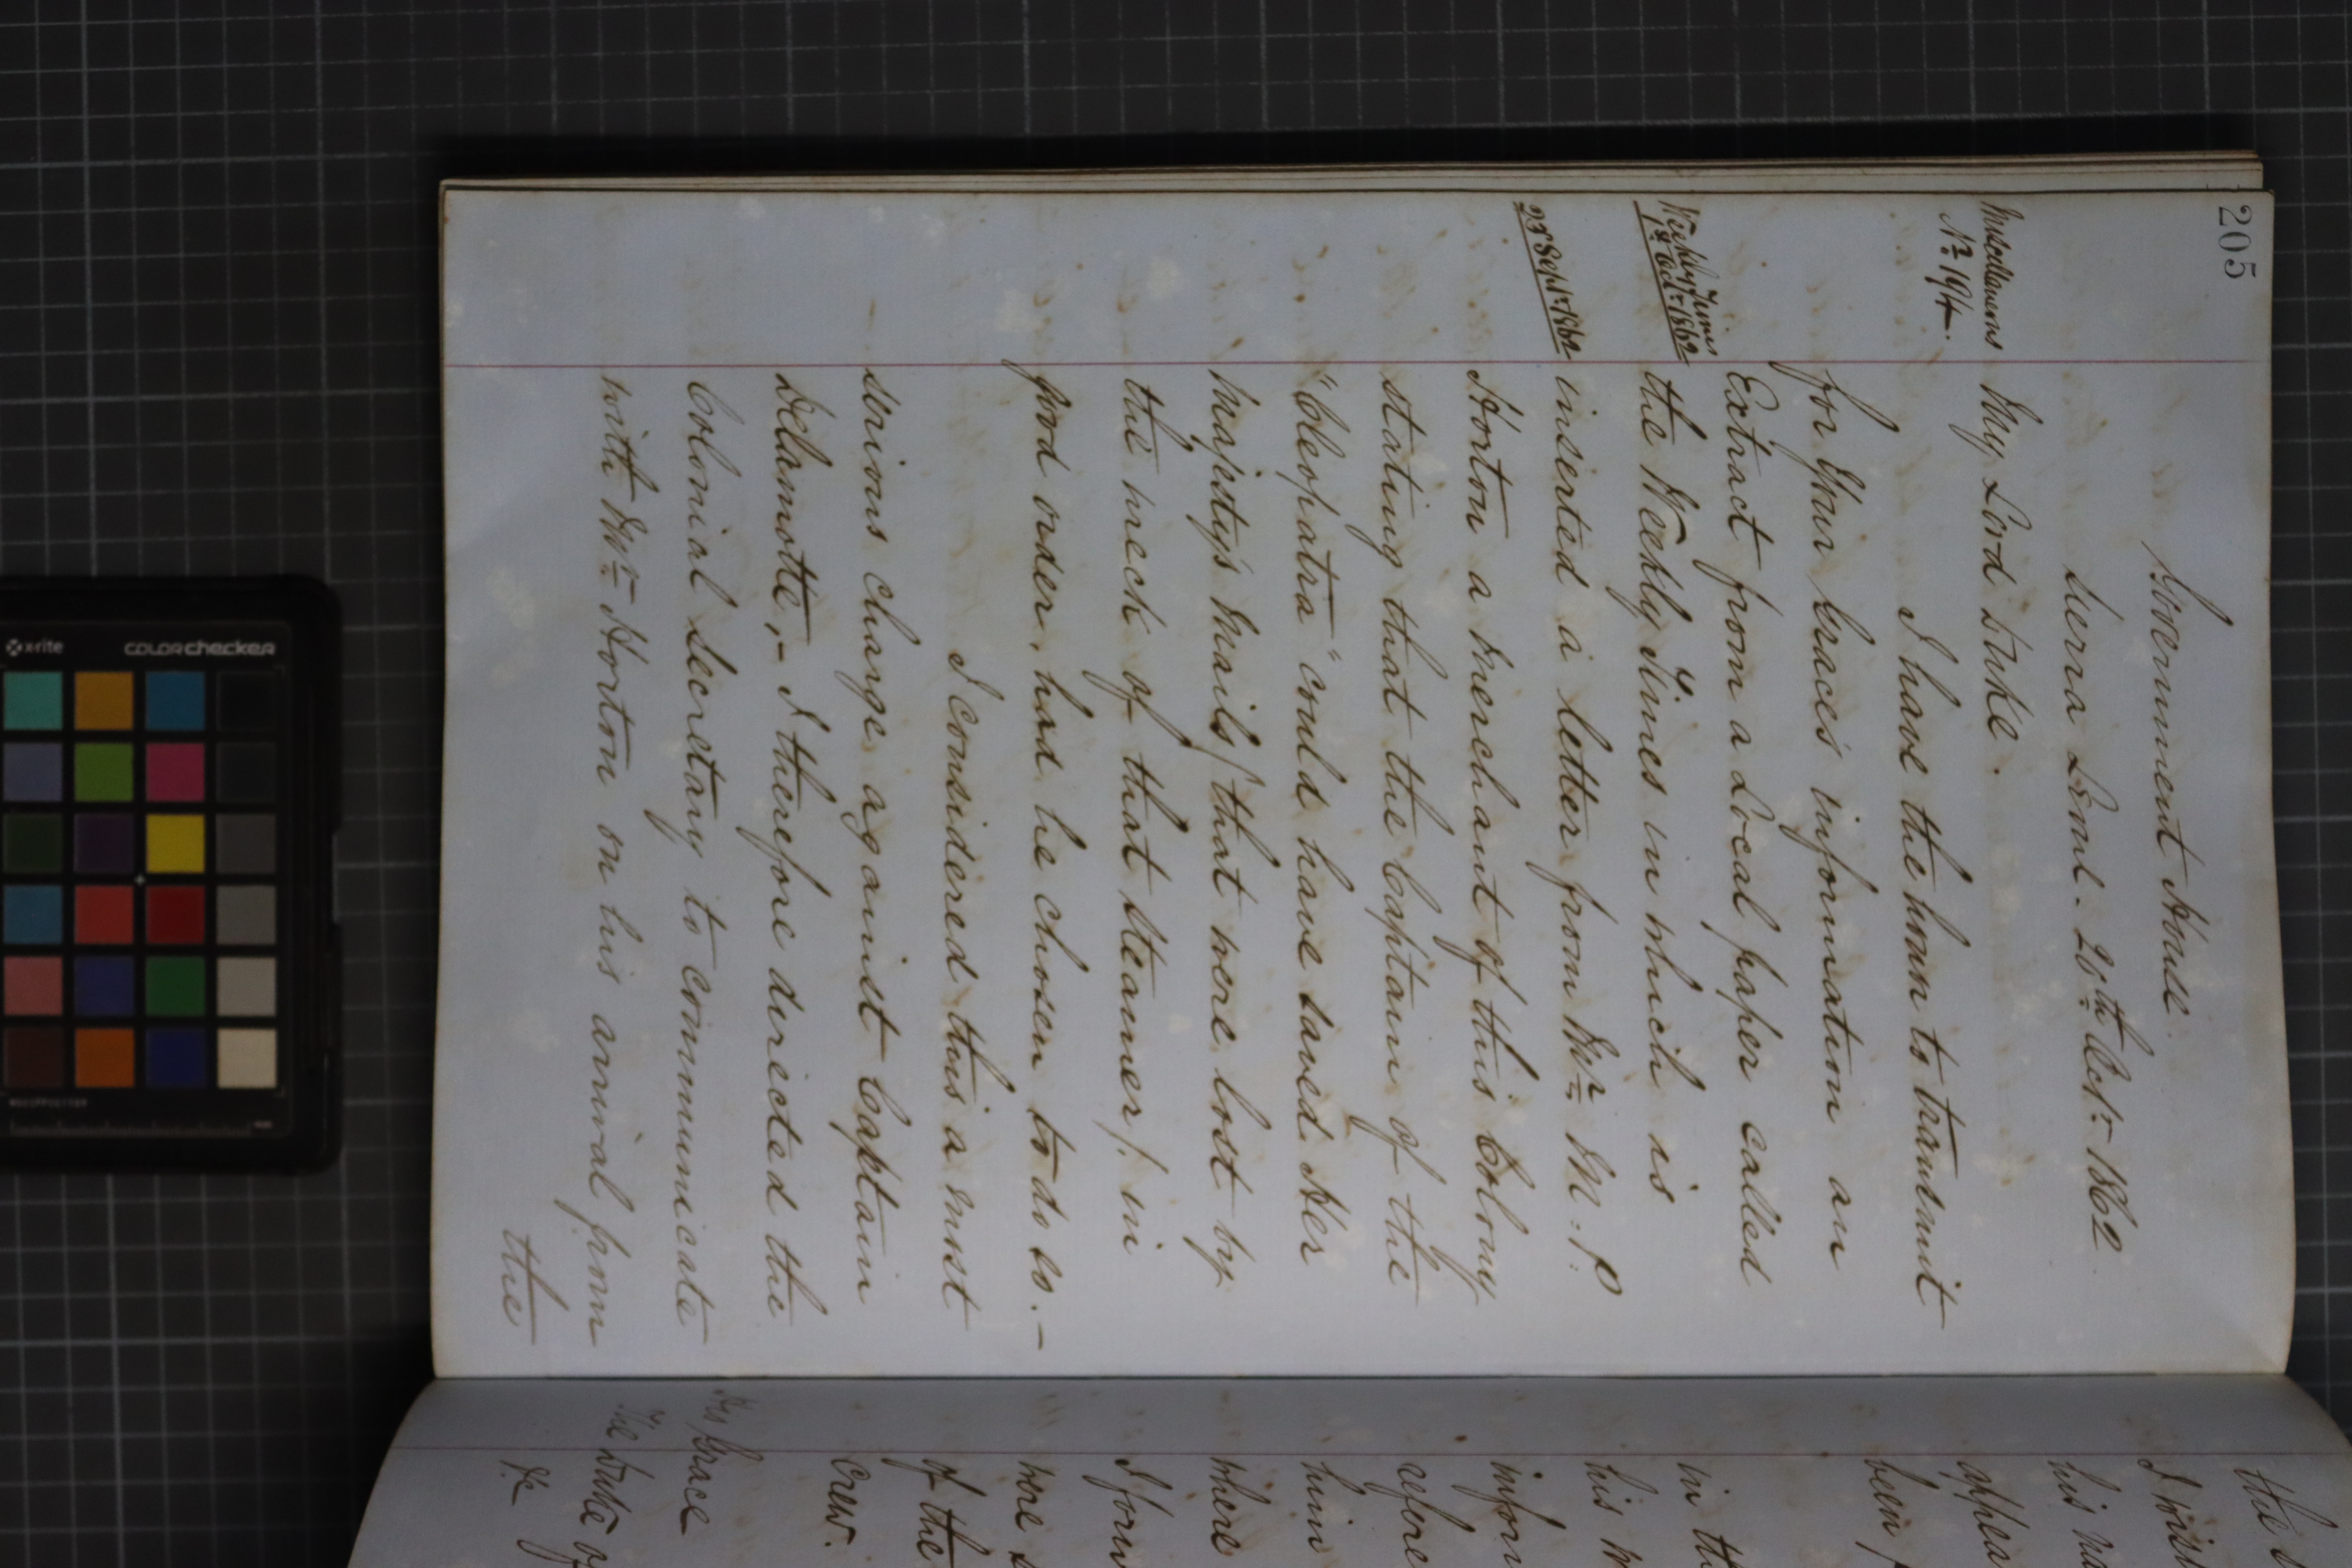 205
Government House
Sierra Leone. 20th Octr. 1862
Miscellaneous
No. 194.
My Lord Duke.
I have the honor to transmit
for Your Grace's information an
Extract from a Local paper called
Weekly Times
1st Octr. 1862
the Weekly Times in which is
23 Septr. 1862
inserted a letter from Mr. M. P
Horton a Merchant of this Colony
stating that the Captain of the
"Cleopatra" could have saved Her
Majesty's Mails/ that were lost by
the wreck of that Steamer/ in
good order, had he chosen to do so.-
I considered this a most
serious charge against Captain
Delamotte,- I therefore directed the
Colonial Secretary to communicate
with Mr. Horton on his arrival from
the
the
his
appea
been
in th
his
infor
refere
him
where
I for
were
of the
crew.
His Grace
The Duke of
&c
x-rite
colorchecker